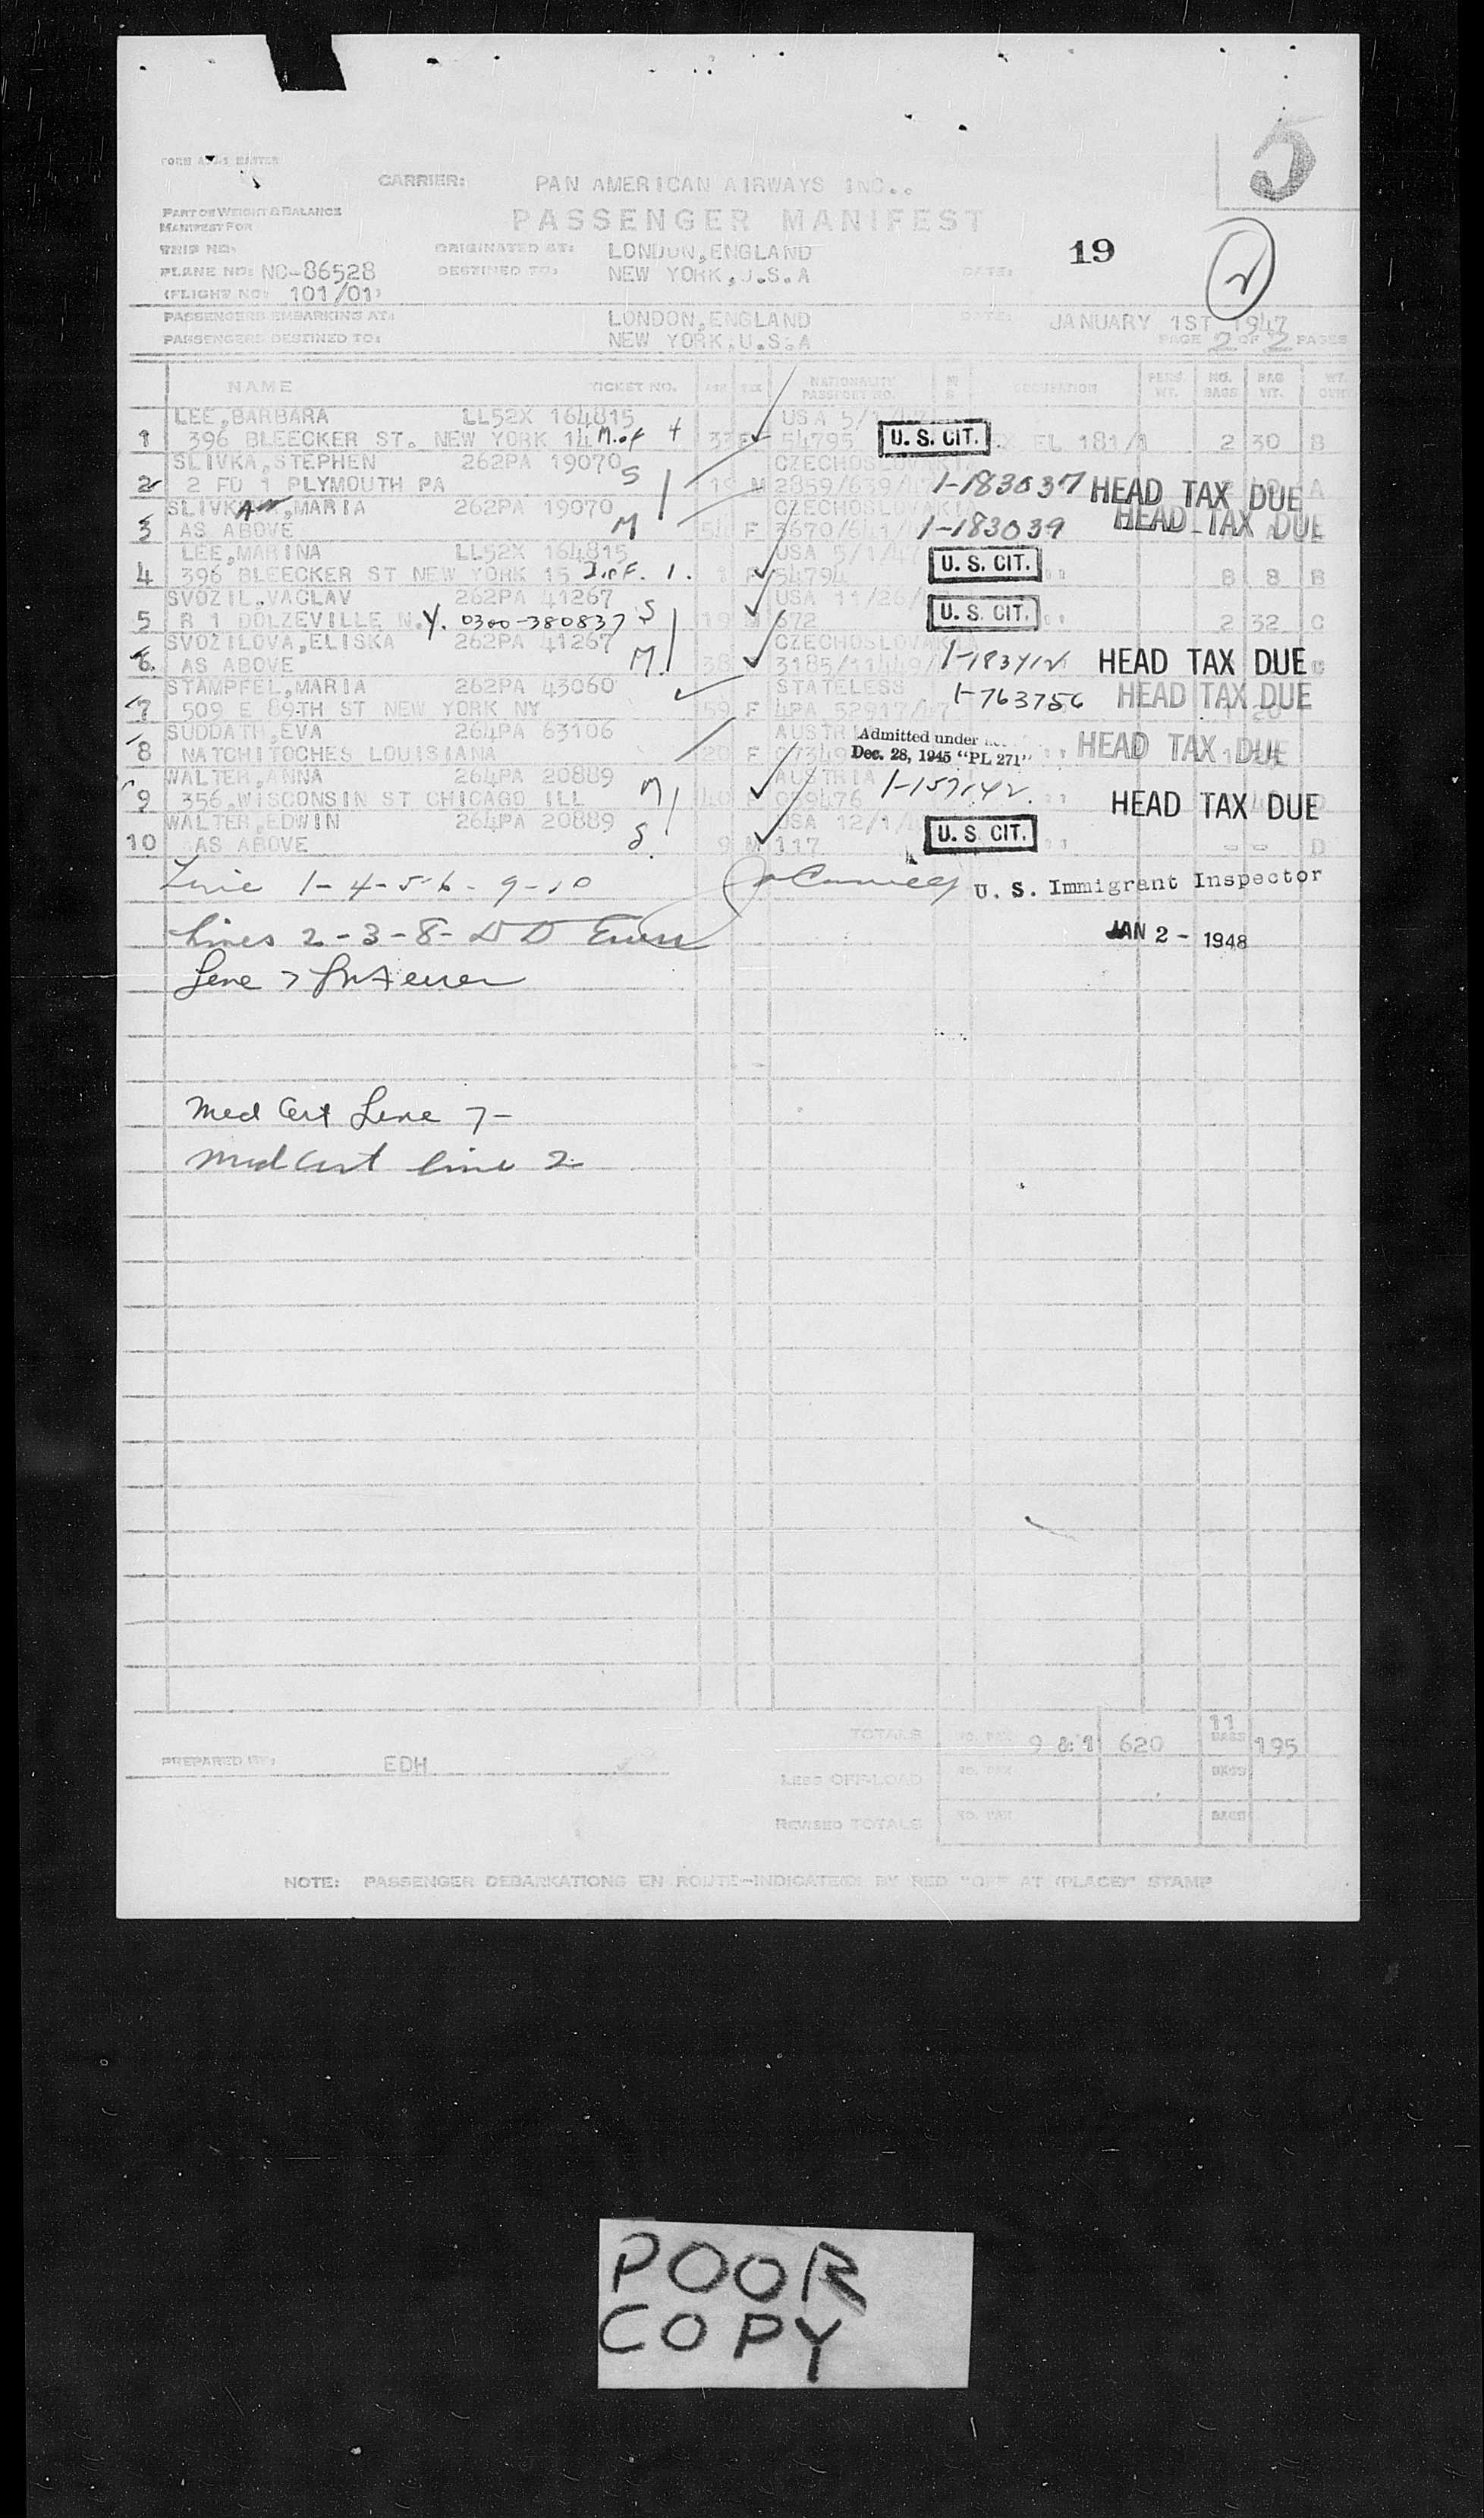 5
CARRIER: PAN AMERICAN AIRWAYS INC..
PART OF WEIGHT & BALANCE
MANIFEST FOR
PASSENGER MANIFEST
19
2
TRIP NO:
ORIGINATED AT: LONDON,ENGLAND
PLANE NO: NC-86528
DESTINED TO: NEW YORK,U.S.A
DATE:
(FLIGHT NO: 101/01)
PASSENGERS EMBARKING AT: LONDON,ENGLAND
DATE: JANUARY 1ST 1947
PASSENGERS DESTINED TO: NEW YORK,U.S.A
PAGE 2 OF 2 PAGES
NAME TICKET NO. AGE SEX NATIONALITY PASSPORT NO. OCCUPATION PERS. WT. NO. BAGS BAG WT.
LEE,BARBARA LL52X 164815 USA 5/1/47
1 396 BLEECKER ST. NEW YORK 14 M. of 4 33 F 54795 U. S. CIT. EL 181/1 2 30 B
SLIVKA,STEPHEN 262PA 19070 S CZECHOSLOVAKIA
2 2 FD 1 PLYMOUTH PA 19 M 2859/639/47 1-183037 HEAD TAX DUE A
SLIVKA,MARIA 262PA 19070 CZECHOSLOVAKIA
3 AS ABOVE M 54 F 3670/641/ 1-183039 HEAD TAX DUE
LEE,MARINA LL52X 164815 USA 5/1/47
4 396 BLEECKER ST NEW YORK 15 1. F 54794 U. S. CIT. 8 8 B
SVOZIL,VACLAV 262PA 41267 S USA 11/26/
5 R 1 DOLZEVILLE N.Y. 0300-380837 19 M 672 U. S. CIT. 2 32 C
SVOZILOVA,ELISKA 262PA 41267 CZECHOSLOVAK
6 AS ABOVE M. 38 3185/11449/ HEAD TAX DUE
STAMPFEL,MARIA 262PA 43060 STATELESS
7 509 E 89TH ST NEW YORK NY 59 F 4PA 52917/47 1-763756 HEAD TAX DUE
SUDDATH,EVA 264PA 63106 AUSTRIA Admitted under
8 NATCHITOCHES LOUISIANA 20 F Dec. 28, 1945 "PL 271" HEAD TAX DUE
WALTER,ANNA 264PA 20889 AUSTRIA
9 356,WISCONSIN ST CHICAGO ILL M 40 F 059476 1-157142 HEAD TAX DUE
WALTER,EDWIN 264PA 20889 USA 12/1/
10 AS ABOVE S. 9 M 117 U. S. CIT. - - D
Line 1-4-5-6-9-10
U. S. Immigrant Inspector
Lines 2-3-8-
JAN 2 - 1948
Line 7
Med Cert Line 7-
Med Cert line 2
TOTALS NO. PAX 9 & 1 620 11 BAGS 195
PREPARED BY: EDH
LESS OFF-LOAD NO. PAX BAGS
REVISED TOTALS NO. PAX BAGS
NOTE: PASSENGER DEBARKATIONS EN ROUTE-INDICATED BY RED "OFF AT (PLACE)" STAMP
POOR
COPY